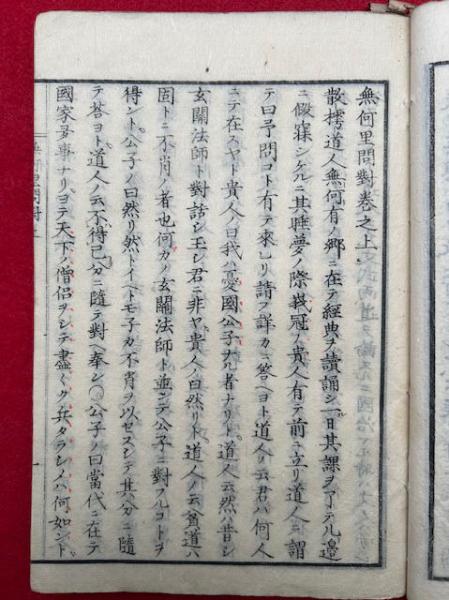 無何里問對卷之上
散樗道人無何有ノ郷ニ在テ經典ヲ讀誦シ一日其課ヲ了テル邉
ニ假寐シケルニ其睡夢ノ際峩冠ノ貴人有テ前ニ立リ道人ニ謂
テ曰予問コト有テ來レリ請フ詳カニ答ヘヨト道人ノ云君ハ何人
ニテ在スヤト貴人ノ曰我ハ憂國公子ナル者ナリト道人云然ハ昔シ
玄關法師ト對話シ玉シ君ニ非ヤ貴人ノ曰然リト道人ノ云貧道ハ
固トニ不肖ノ者也何カ玄關法師ト並ンテ公子ニ對フルコトヲ
得ント公子ノ曰然リ然トイヘトモ子カ不肖ヲ以セスシテ其分ニ隨
テ荅ヨト道人ノ云不得已分ニ隨テ對ヘ奉シ〇公子ノ曰當代ニ在テ
國家多事ナリヨテ天下ノ僧侶ヲシテ盡ク兵タラシメハ何如ント